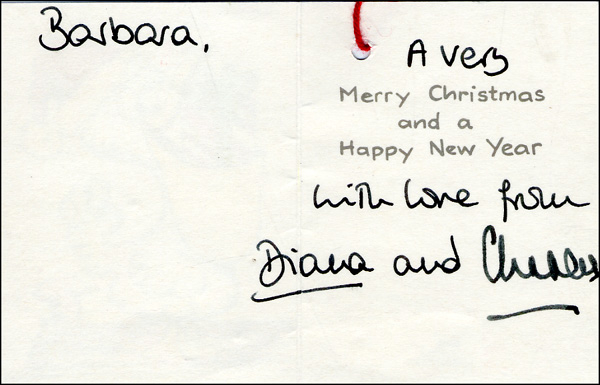 Barbara,
A very
Merry Christmas
and a
Happy New Year
with love from
Diana and Charles